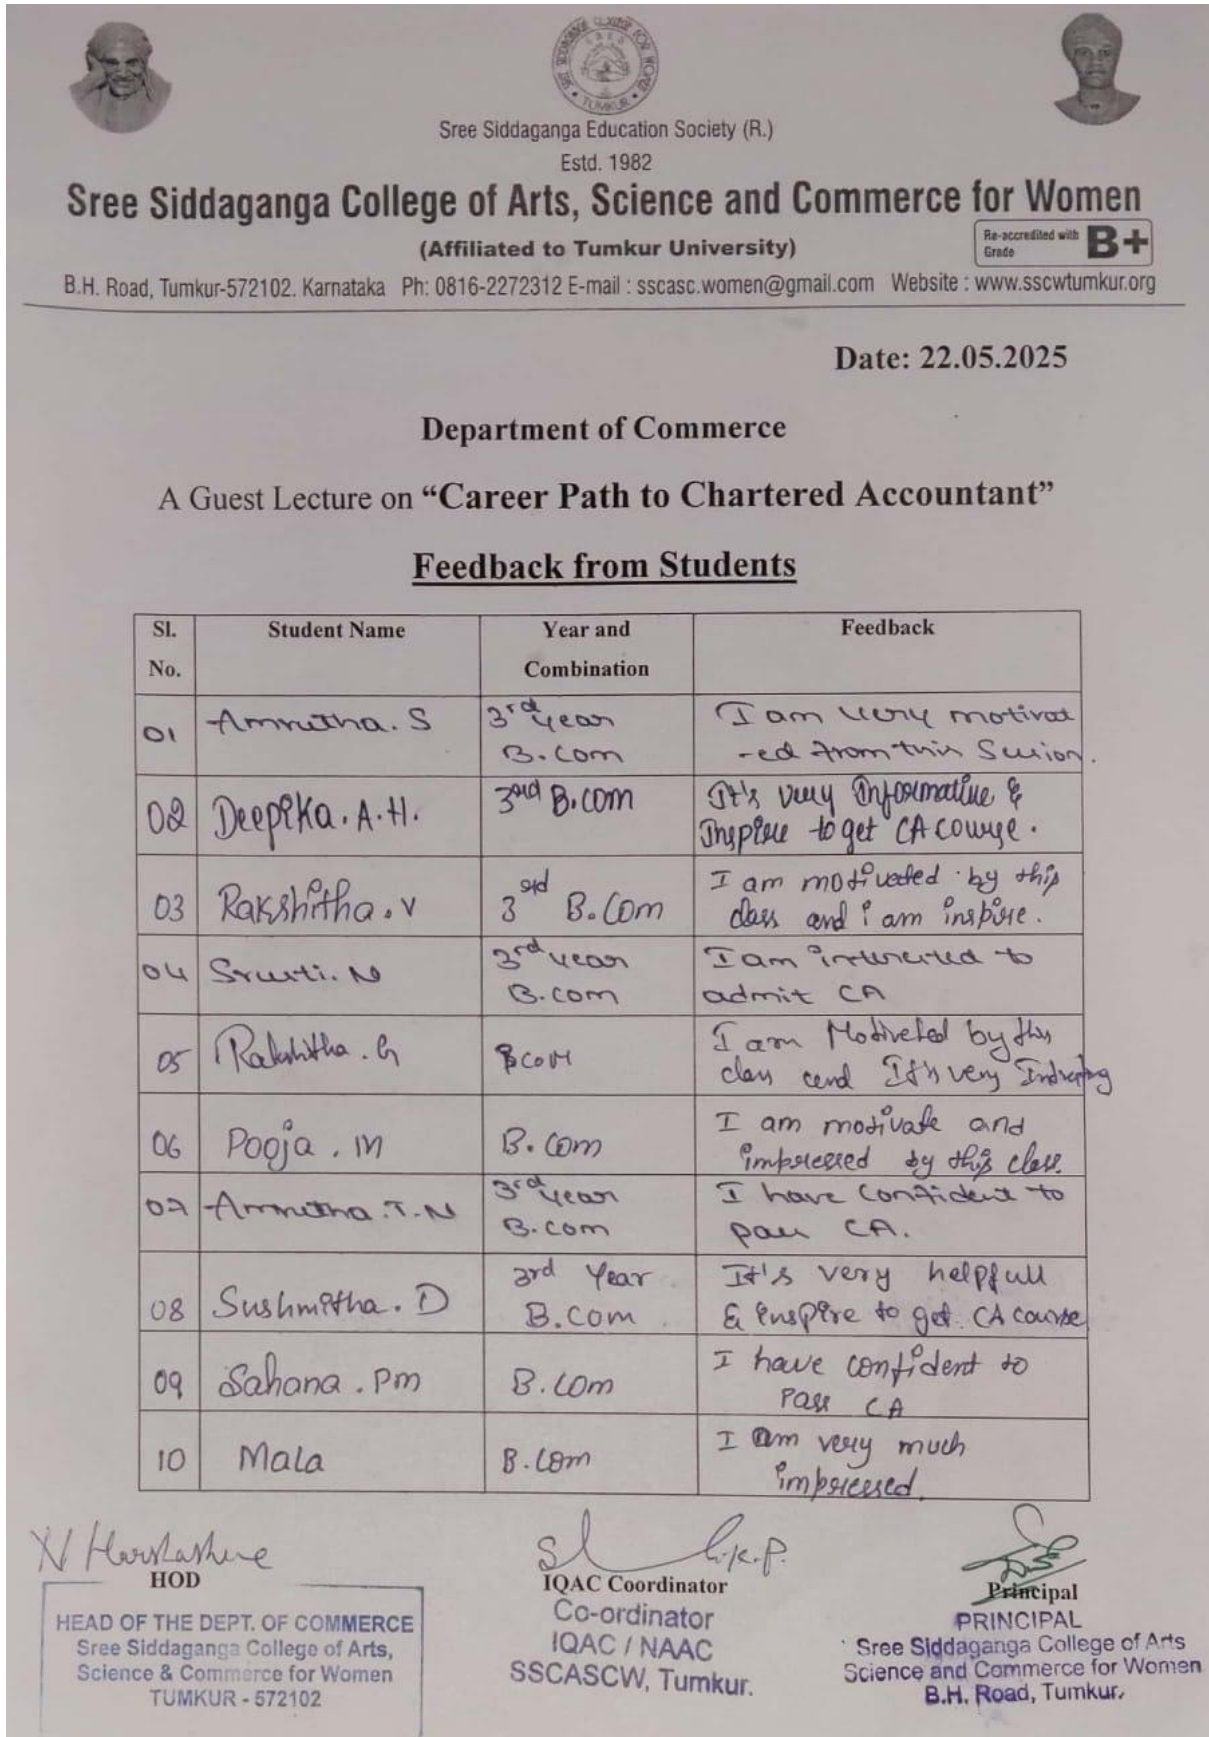 SREE SIDDAGANGA COLLEGE FOR WOMEN
TUMKUR
Sree Siddaganga Education Society (R.)
Estd. 1982
Sree Siddaganga College of Arts, Science and Commerce for Women
(Affiliated to Tumkur University)
Re-accredited with
Grade B+
B.H. Road, Tumkur-572102. Karnataka Ph: 0816-2272312 E-mail : sscasc.women@gmail.com Website : www.sscwtumkur.org
Date: 22.05.2025
Department of Commerce
A Guest Lecture on “Career Path to Chartered Accountant”
Feedback from Students
Sl. No. Student Name Year and Combination Feedback
01 Amrutha. S 3rd year B.com I am very motivat
-ed from this Session.
02 Deepika. A.H. 3rd B.com It's very Informative &
Inspire to get CA course.
03 Rakshitha. V 3rd B.Com I am motivated by this
class and i am inspire.
04 Sruti. N 3rd year B.com I am interested to
admit CA
05 Rakshitha. G BCom I am Motiveted by this
class and It's very
06 Pooja. M B.Com I am motivate and
impressed by this class.
07 Amrutha. T. N 3rd year B.com I have Confident to
pass CA.
08 Sushmitha. D 3rd Year B.Com It's very helpfull
& inspire to get CA course
09 Sahana. Pm B.Com I have confident to
Pass CA
10 Mala B.Com I am very much
impressed.
HOD
HEAD OF THE DEPT. OF COMMERCE
Sree Siddaganga College of Arts,
Science & Commerce for Women
TUMKUR - 572102
IQAC Coordinator
Co-ordinator
IQAC / NAAC
SSCASCW, Tumkur.
Principal
PRINCIPAL
Sree Siddaganga College of Arts
Science and Commerce for Women
B.H. Road, Tumkur.